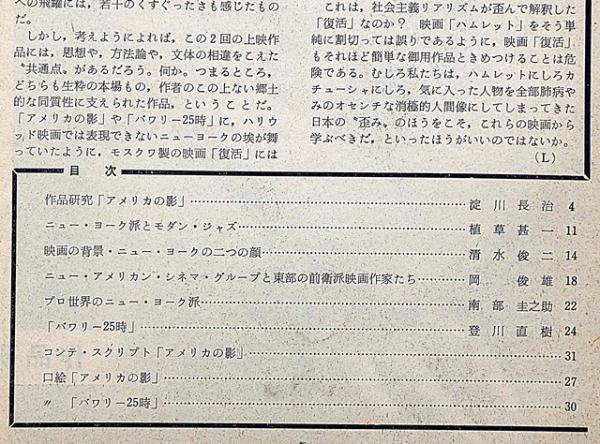 への飛躍には,若干のくすぐったさも感じたもの
だ。
しかし,考えようによれば,この2回の上映作
品には,思想や,方法論や,文体の相違をこえた
〝共通点〟があるだろう。何か。つまるところ,
どちらも生粋の本場もの,作者のこの上ない郷土
的な同質性に支えられた作品,ということだ。
「アメリカの影」や「バワリー25時」に,ハリウ
ッド映画では表現できないニューヨークの埃が舞
っていたように,モスクワ製の映画「復活」には
これは,社会主義リアリズムが歪んで解釈した
「復活」なのか? 映画「ハムレット」をそう単
純に割切っては誤りであるように,映画「復活」
もそれほど簡単な御用作品ときめつけることは危
険である。むしろ私たちは,ハムレットにしろカ
チューシャにしろ,気に入った人物を全部肺病や
みのオセンチな消極的人間像にしてしまってきた
日本の〝歪み〟のほうをこそ,これらの映画から
学ぶべきだ,といったほうがいいのではないか。
(L)
目次
作品研究「アメリカの影」 淀川長治 4
ニュー・ヨーク派とモダン・ジャズ 植草甚一 11
映画の背景・ニュー・ヨークの二つの顔 清水俊二 14
ニュー・アメリカン・シネマ・グループと東部の前衛派映画作家たち 岡俊雄 18
プロ世界のニュー・ヨーク派 南部圭之助 22
「バワリー25時」 登川直樹 24
コンテ・スクリプト「アメリカの影」 31
口絵「アメリカの影」 27
〃「バワリー25時」 30